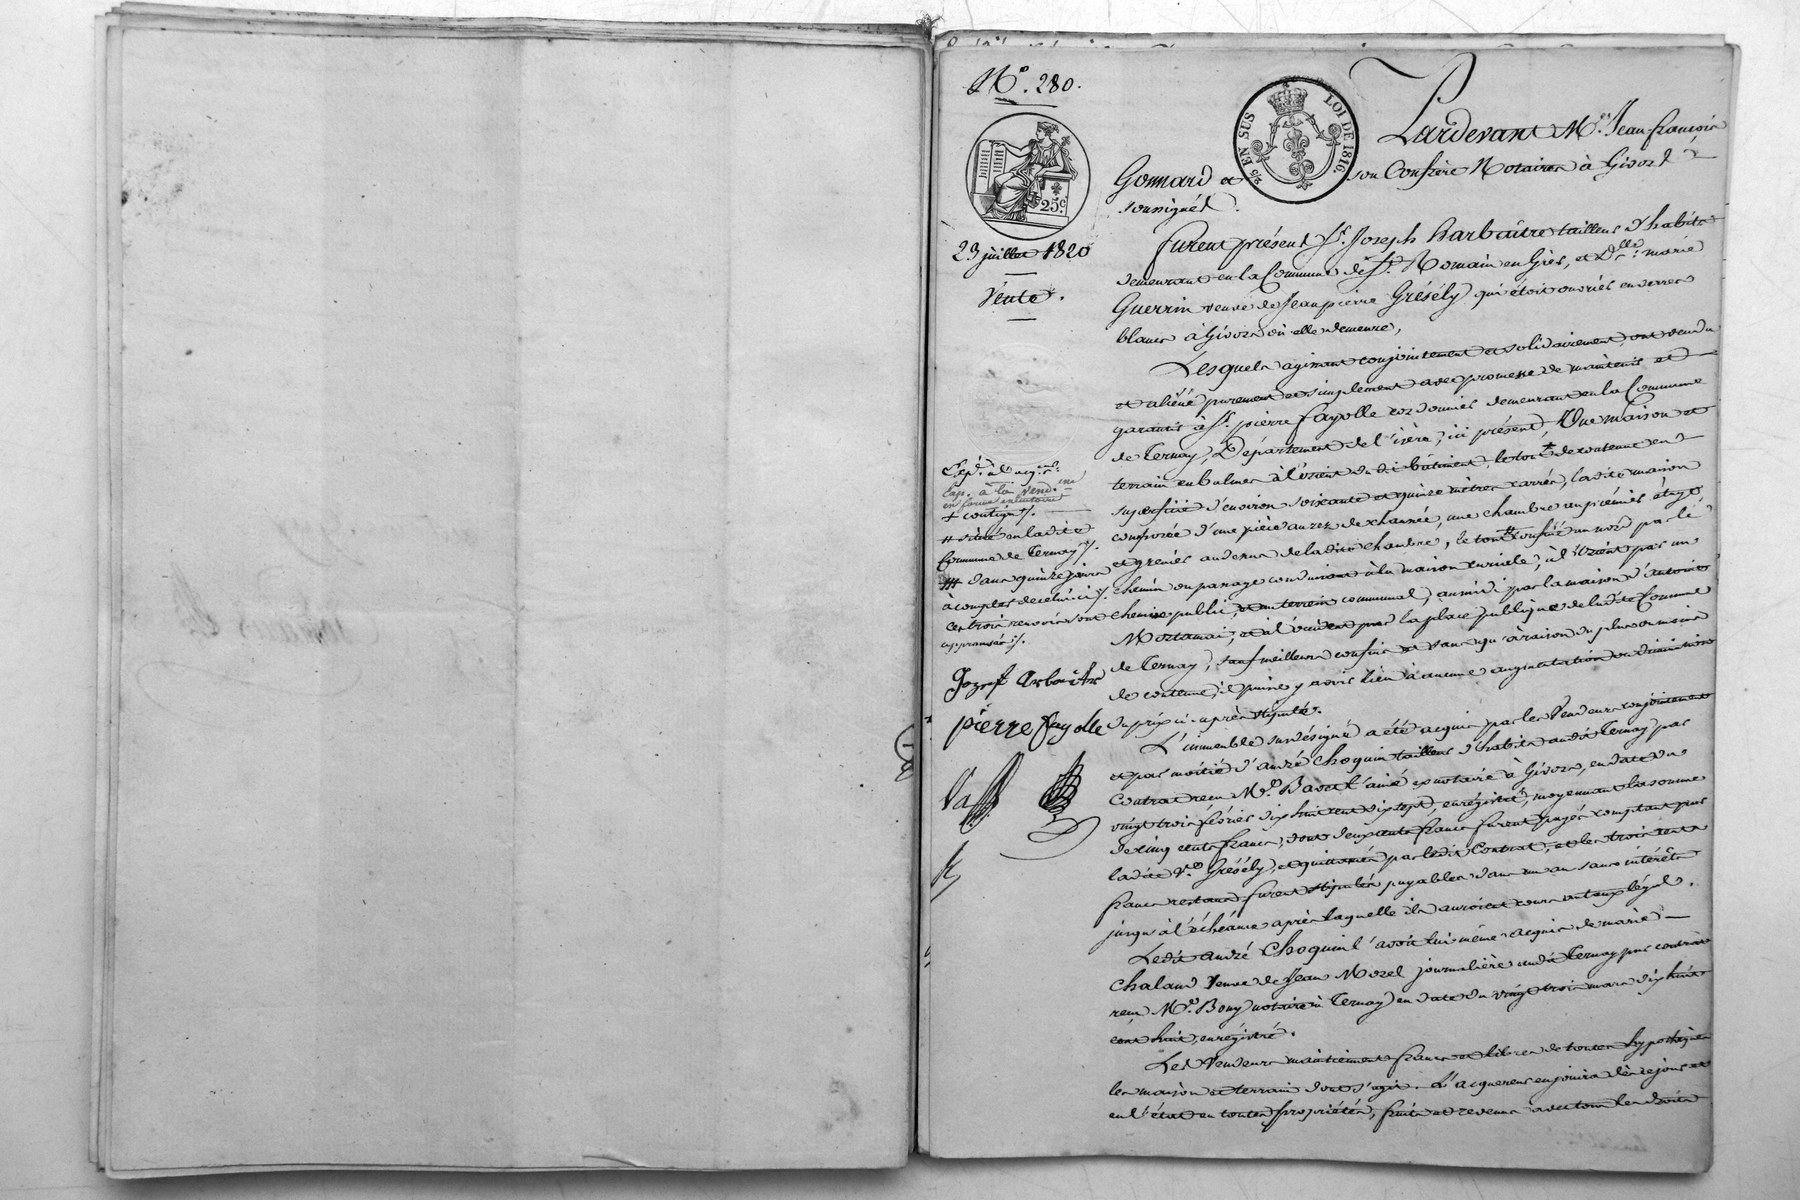 N.° 280.
EN SUS
LOI DE 1816
25 c.
23 juillet 1820
Vente.
Pardevant M.e Jean françois
Gonnard et son Confrère Notaires à Givors
soussignés.
furent présent Sr. Joseph Barbaitre tailleur d'habits
demeurant en la Commune de St. Romain en Giès, et D.lle marie
Guerrin veuve de Jean pierre Grésély qui étoit ouvrier en verre
blanc à Givors où elle demeure,
Lesquels agissant conjointement et solidairement, ont vendu
et aliéné purement et simplement avec promesse de maintenir et
garantir à Sr. pierre fayolle cordonnier demeurant en la Commune
de Ternay, Département de l'isère, ici présent, Une maison et
terrain en Balmes à l'orient du dit bâtiment, le tout de contenue en
superficie d'environ soixante et quinze mètres carrés, la dite maison
composée d'une pièce au rez de chaussée, une chambre au premier étage
et grenier au dessus de la dite chambre, le tout confiné au nord par le
chemin ou passage conduisant à la maison curiale, à l'Orient par un
chemin public, et un terrein communal, au midi par la maison d'antoine
Mortamai, et à l'occident par la place publique de la dite Commune
de Ternay, sauf meilleurs confins et sans qu'à raison du plus ou moins
de contenue, il puisse y avoir lieu à aucune augmentation ou diminution
du prix ci-après stipulé.
L'immeuble sus désigné a été acquis par les Vendeurs conjointement
et par moitié d'andré Choquin tailleur d'habits au dit Ternay par
Contrat reçu M.e Bavat l'ainé exnotaire à Givors, en date du
vingt trois février dix huit cent dix sept, enrégistré, moyennant la somme
de cinq cents francs, dont deux cents francs furent payés comptant par
ladite V.e Grésély, et quittancés par ledit Contrat, et les trois cents
francs restans furent stipulés payables dans un an sans intérêts
jusqu'à l'échéance après laquelle ils auroient cours au taux légal.
Ledit andré Choquin l'avoit lui même acquis de marie
Chaland Veuve de Jean Morel journalière au dit Ternay par contrat
reçu M.e Bony notaire à Ternay en date du vingt trois mars dix huit
cent huit, enrégistré.
Les Vendeurs maintiennent francs et libres de toutes hypothèques
les maison et terrain dont s'agit. L'acquereur en jouira dès ce jour et
en l'état en toutes propriétés, fruits et revenus avec tous les droits
Exp. à l'acq.r
Exp. à la vend.
en forme exécutoire
+ contigu
# situé en la dite
Commune de Ternay
# dans quinze jours
à compter de celui ci
ces trois renvois sont
approuvés
Jozef arbaitr
pierre fayolle